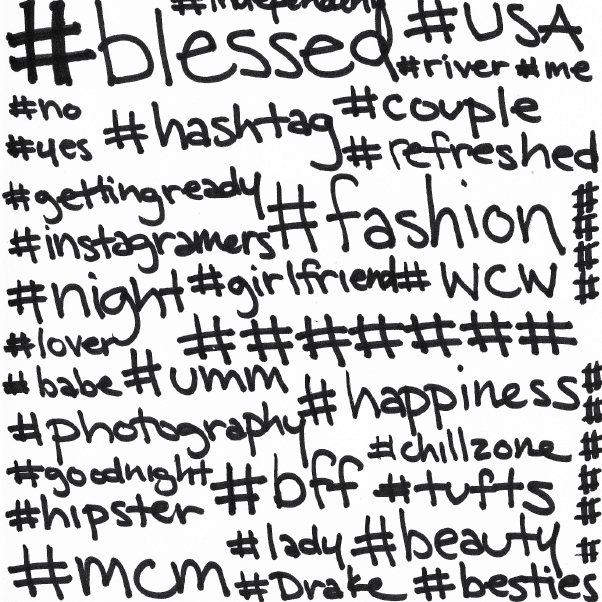 #independent
#blessed #USA
#river #me
#no #hashtag #couple
#yes #refreshed
#gettingready #fashion
#instagramers
#night #girlfriend # WCW
#lover #######
#babe #umm #happiness
#photography #chillzone
#goodnight #bff #tufts
#hipster
#lady #beauty
#mcm #Drake #besties
####
######